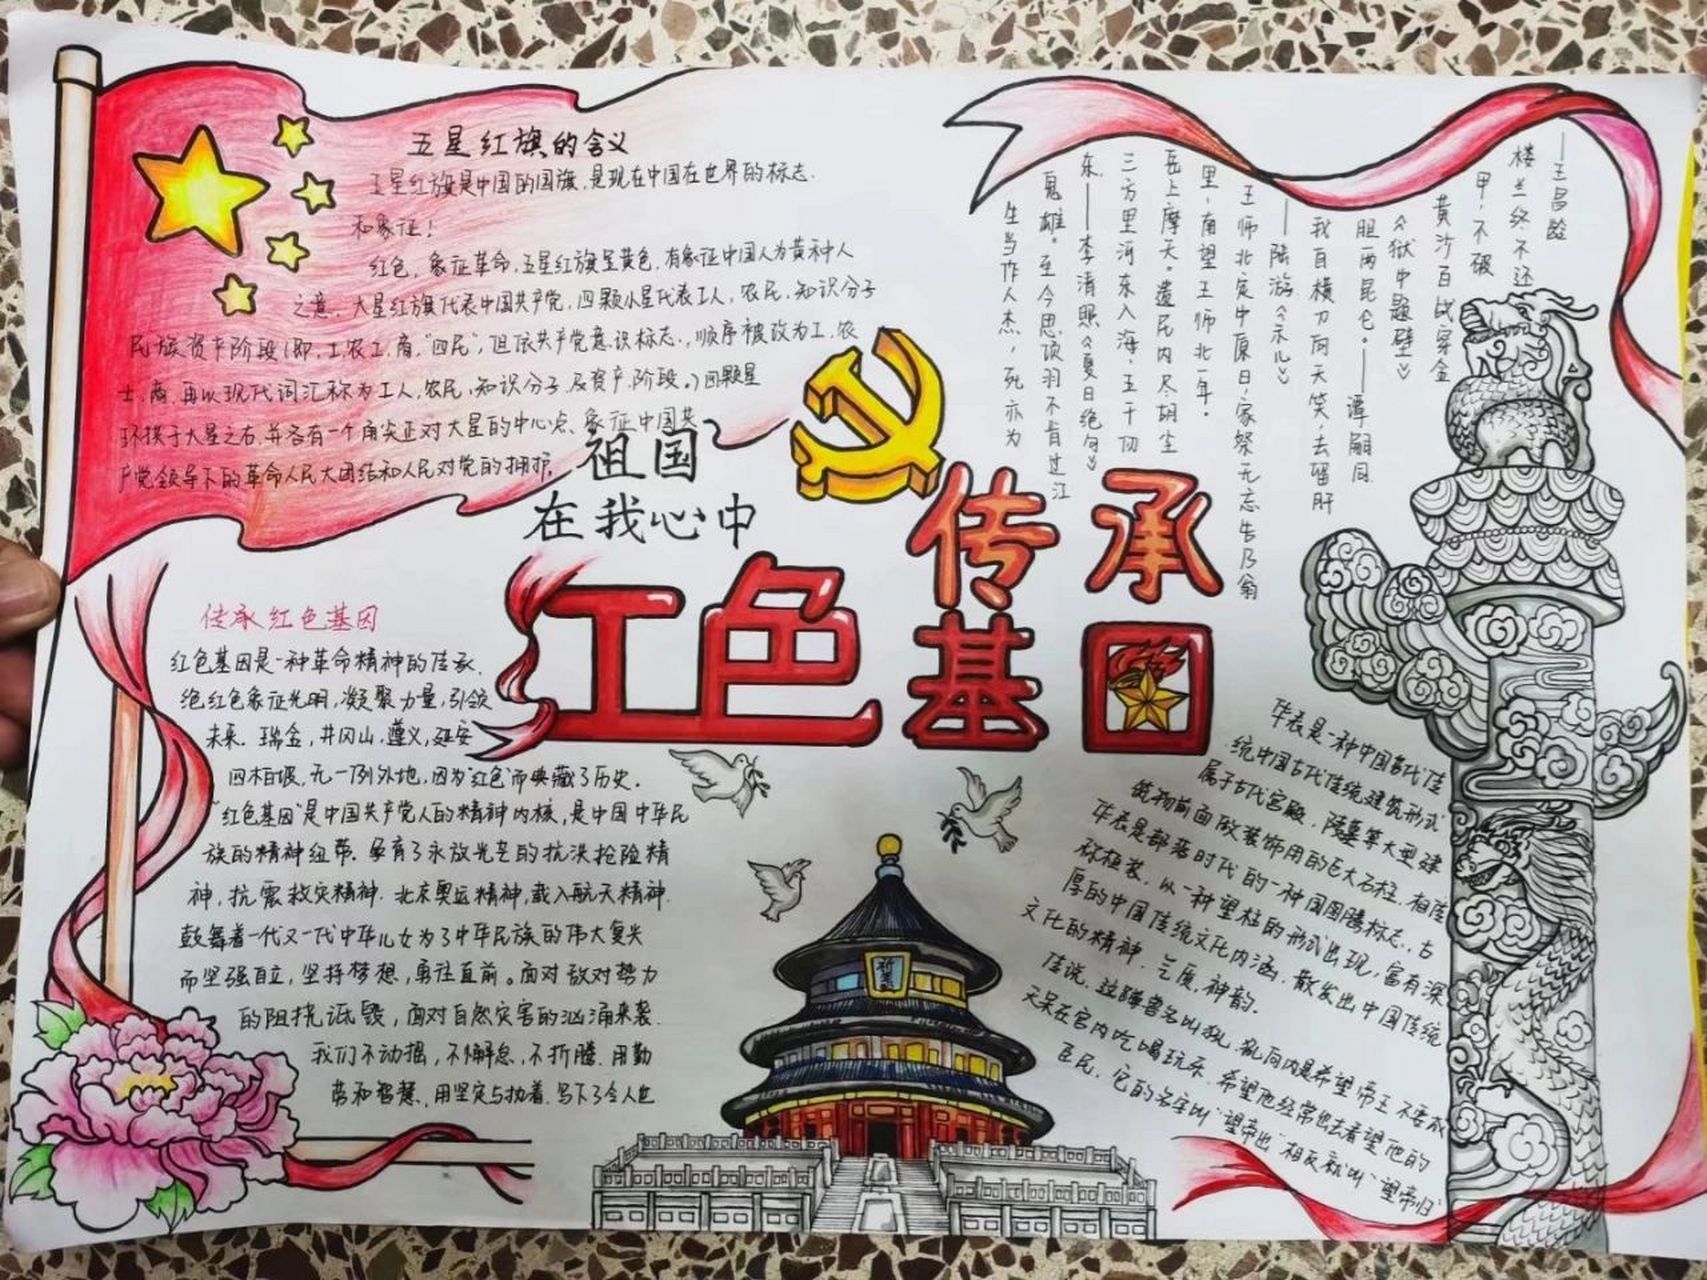 五星红旗的含义
五星红旗是中国的国旗,是现在中国在世界的标志.
和象征!
红色,象征革命,五星红旗呈黄色,有象征中国人为黄种人
之意.大星红旗代表中国共产党,四颗小星代表工人,农民,知识分子
民族资产阶段(即,工农工,商,"四民",但依共产党意识标志.,顺序被改为工,农
士,商,再以现代词汇称为工人,农民,知识分子及资产阶段。)四颗星
环拱于大星之右,并各有一个角尖正对大星的中心点、象征中国共
产党领导下的革命人民大团结和人民对党的拥护.
祖国
在我心中
传承
红色基因
传承红色基因
红色基因是一种革命精神的传承,
绝红色象征光明,凝聚力量,引领
未来.瑞金,井冈山,遵义,延安
四柏坡,无一例外地,因为"红色"而典藏了历史.
"红色基因"是中国共产党人的精神内核,是中国中华民
族的精神纽带.承育了永放光芒的抗洪抢险精
神,抗震救灾精神.北京奥运精神,载入航天精神.
鼓舞着一代又一代中华儿女为了中华民族的伟大复兴
而坚强自立,坚持梦想,勇往直前。面对敌对势力
的阻挠诋毁,面对自然灾害的汹涌来袭.
我们不动摇,不懈怠,不折腾.用勤
劳和智慧,用坚定与执着,写下了令人也
——王昌龄
楼兰终不还
甲,不破
黄沙百战穿金
《狱中题壁》
胆两昆仑。——谭嗣同
我自横刀向天笑,去留肝
——陆游《示儿》
王师北定中原日,家祭无忘告乃翁
里,南望王师北一年。
岳上摩天。遗民内尽胡尘
三万里河东入海,五千仞
东——李清照《夏日绝句》
鬼雄。至今思项羽不肯过江
生当作人杰,死亦为
祈年
华表是一种中国古代传
统中国古代传统建筑形式
属于古代宫殿,陵墓等大型建
筑物前面做装饰用的巨大石柱,相传
华表是部落时代的一种国图腾标志,古
称桓表,以一种望柱的形式出现,富有深
厚的中国传统文化内涵,散发出中国传统
文化的精神,气质,神韵.
传说,这
天呆在宫内吃喝玩乐,希望他经常出去看望他的
臣民,它的名字叫"望帝出"相反就叫"望帝归"